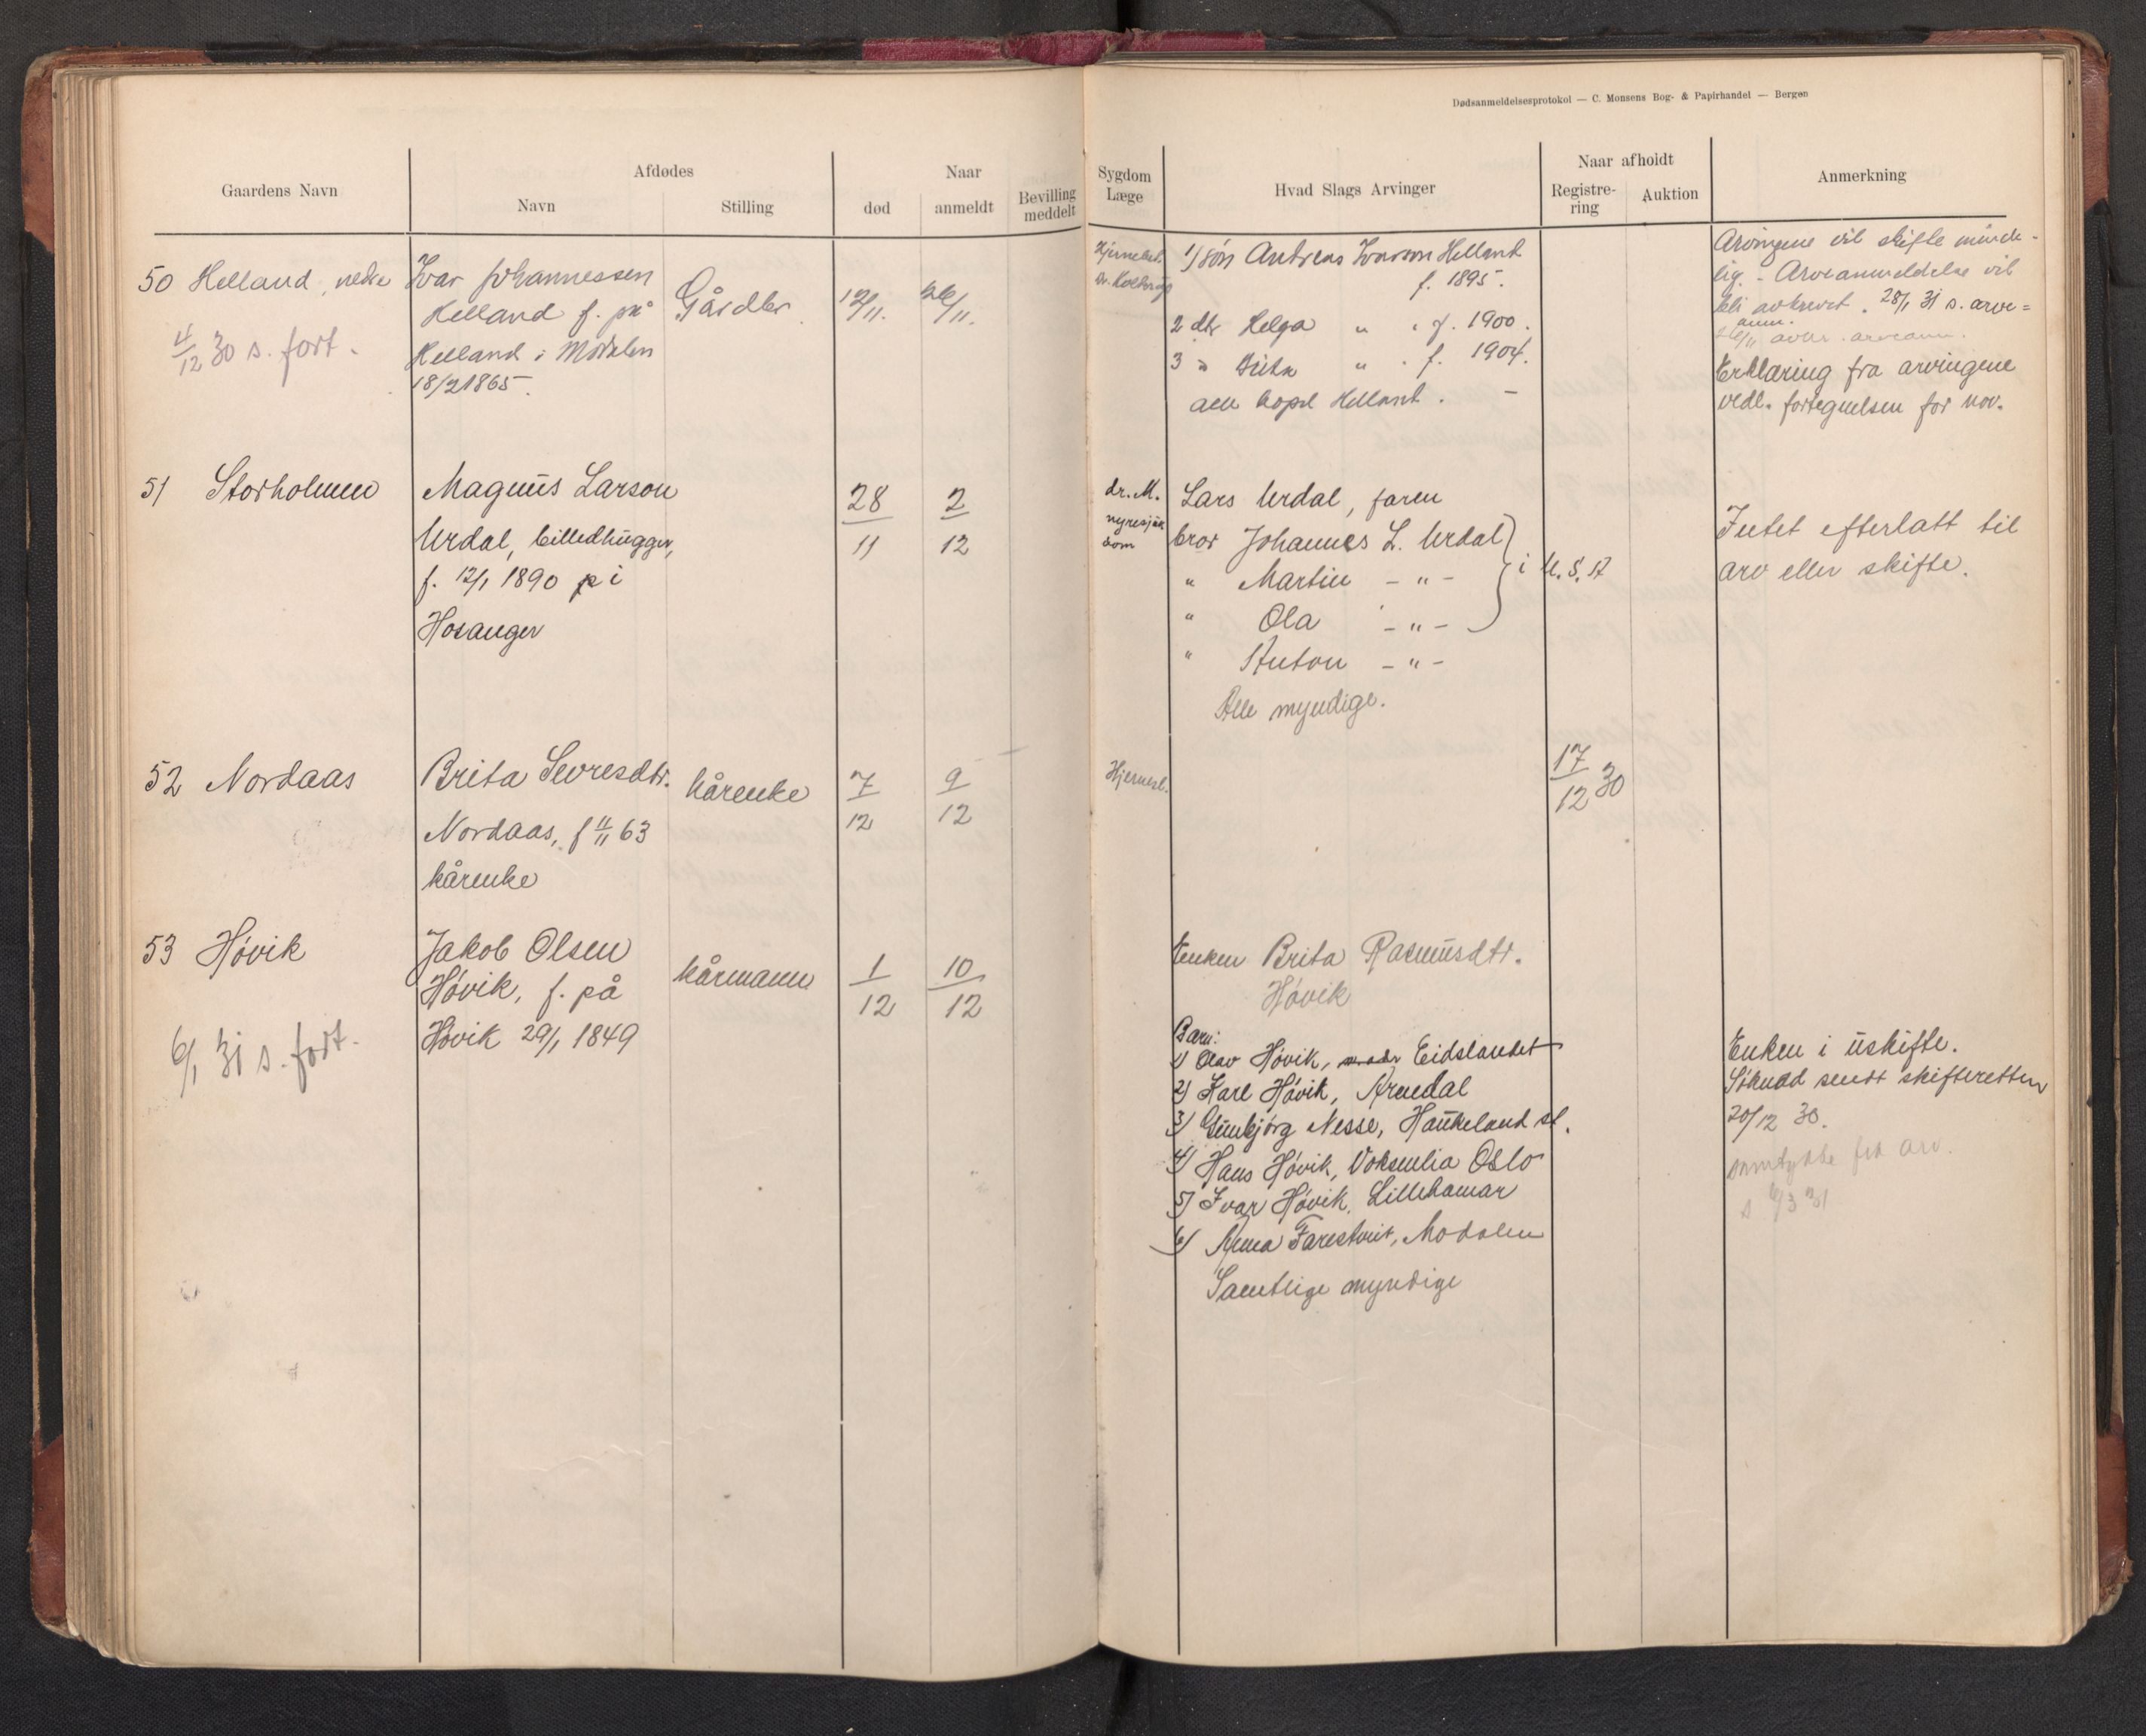 Dødsanmeldelsesprotokol — C. Monsens Bog- & Papirhandel — Bergen
Gaardens Navn
Afdødes
Navn
Stilling
Naar
død
anmeldt
Bevilling meddelt
Sygdom Læge
Hvad Slags Arvinger
Naar afholdt
Registre-ring
Auktion
Anmerkning
50 Helland, nedre
4/12 30 s. fort.
Ivar Johannessen
Helland f. på
Helland i Modalen
18/2 1865.
Gårdbr.
12/11.
26/11.
1) søn Andreas Ivarson Helland
f. 1895.
2 dtr Helga " " f. 1900.
3 " Brita " " f. 1904.
alle bopel Helland.
Arvingene vil skifte minde-
lig. - Arveanmeldelse vil
bli avkrevet. 28/1 31 s. arve=
anm.
Erklæring fra arvingene
vedl. fortegnelsen for nov.
51 Storholmen
Magnus Larson
Urdal, billedhugger,
f. 12/1 1890 på i
Hosanger
28/11
2/12
dr. M.
nyresjuk
dom
Lars Urdal, faren
bror Johannes L. Urdal
" Martin - " -
" Ola - " -
i U.S.A
" Anton - " -
Alle myndige.
Intet efterlatt til
arv eller skifte.
52 Nordaas
Brita Sevresdtr.
Nordaas, f 11/11 63
kårenke
kårenke
7/12
9/12
Hjernesl.
17/12 30
53 Høvik
6/1 31 s. fort.
Jakob Olsen
Høvik, f. på
Høvik 29/1 1849
kårmann
1/12
10/12
Enken Brita Rasmusdtr.
Høvik
Barn:
1) Olav Høvik, Eidslandet
2) Karl Høvik, Arnedal
3) Gunbjørg Nesse, Haukeland st.
4) Hans Høvik, Voksenlia Oslo
5) Ivar Høvik, Lillehamar
6) Anna Farestveit, Modalen
Samtlige myndige
Enken i uskifte.
Søknad sendt skifteretten
20/12 30.
samtykke fra arv.
s 6/3 31